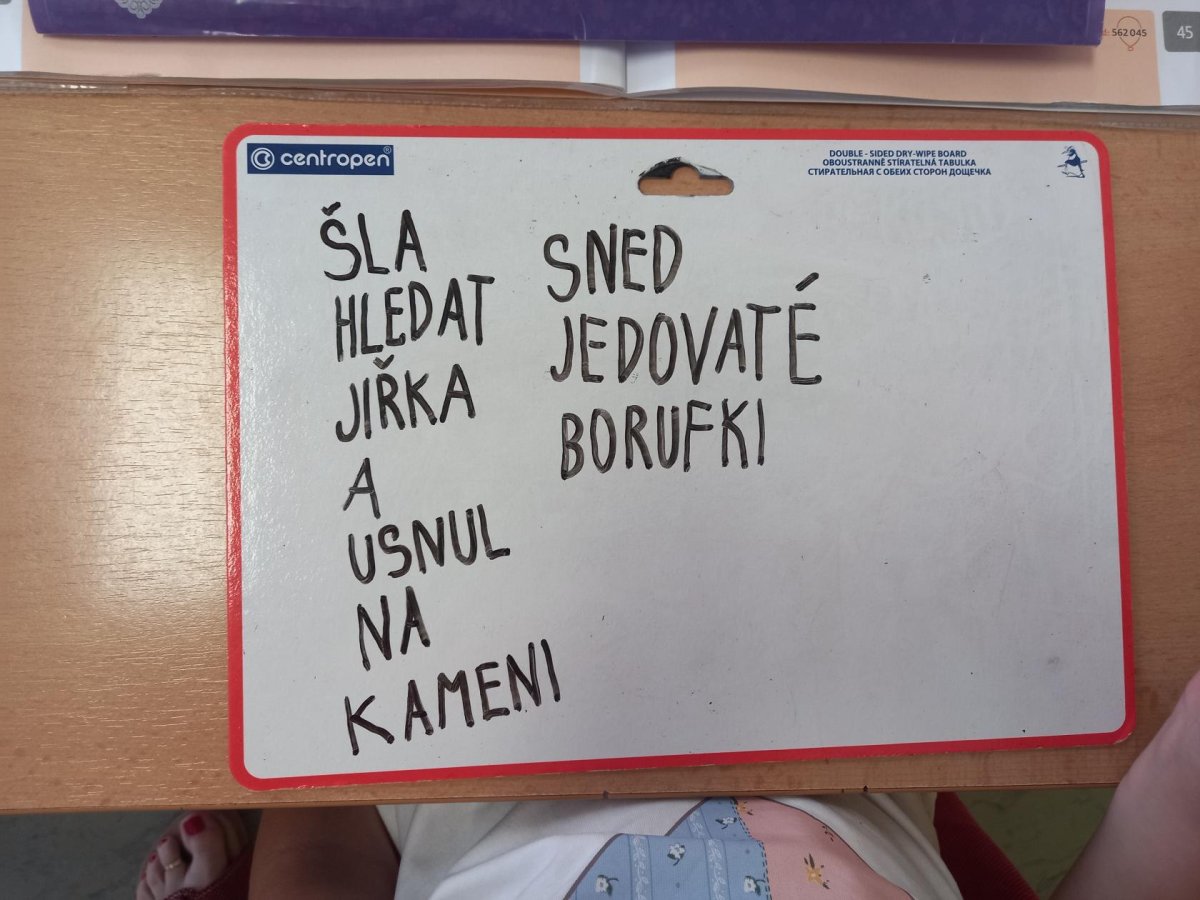 d: 562 045
45
centropen®
DOUBLE - SIDED DRY-WIPE BOARD
OBOUSTRANNĚ STÍRATELNÁ TABULKA
СТИРАТЕЛЬНАЯ С ОБЕИХ СТОРОН ДОЩЕЧКА
ŠLA
HLEDAT
JIŘKA
A
USNUL
NA
KAMENI
SNED
JEDOVATÉ
BORUFKI